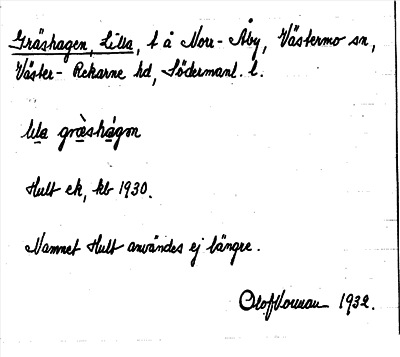 Gräshagen, Lilla, t å Norr-Åby, Västermo sn,
Väster-Rekarne hd, Södermanl. l.
lila græshágən
Hult ek, kb 1930.
Namnet Hult användes ej längre.
Olof 1932.